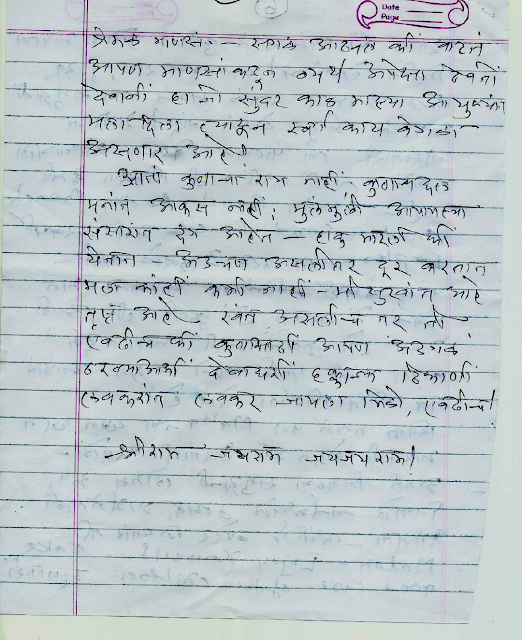 Date
Page
प्रेमळ माणसं – सगळं आठवलं कीं वाटतं
आपण माणसांकडून व्यर्थ अपेक्षा ठेवतों
देवानीं हा जो सुंदर काळ माझ्या आयुष्यांत
मला दिला त्याहून स्वर्ग काय वेगळा
असणार आहे!
आतां कुणाचा राग नाहीं, कुणाबद्दल
मनांत आकस नाहीं, मुलंमुली आपापल्या
संसारात दंग आहेत – हाक मारली कीं
येतात – अडचण असली तर दूर करतात
मला कांहीं कमी नाहीं – मी सुखांत आहे
तृप्त आहे – खंत असलीच तर ती
एवढीच कीं कुणालाही आपण अडगळ
ठरण्याआधीं देवाघरीं हक्काच्या ठिकाणीं
लवकरांत लवकर जायला मिळो एवढीच!
श्रीराम जयराम जयजयराम!